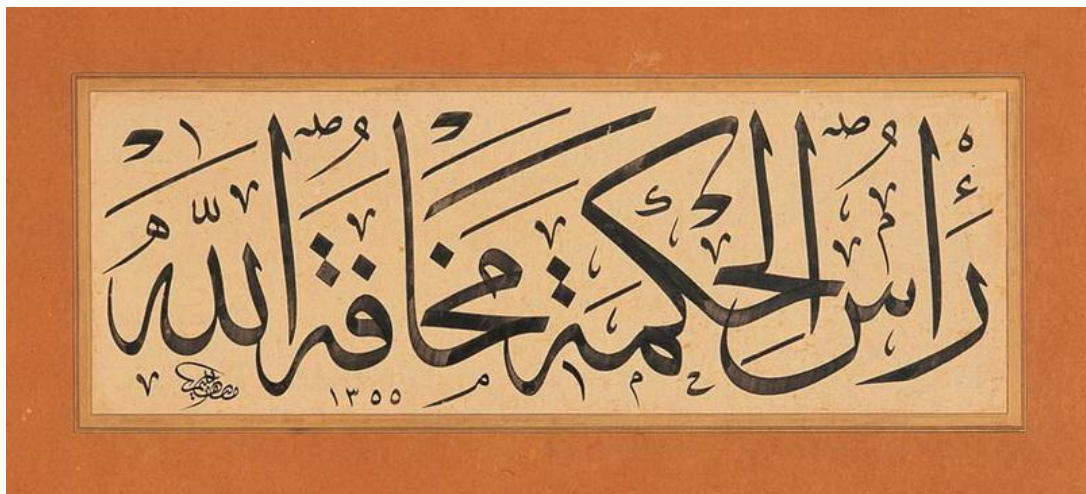 رَأْسُ الْحِكْمَةِ مَخَافَةُ اللّٰهِ
١٣٥٥